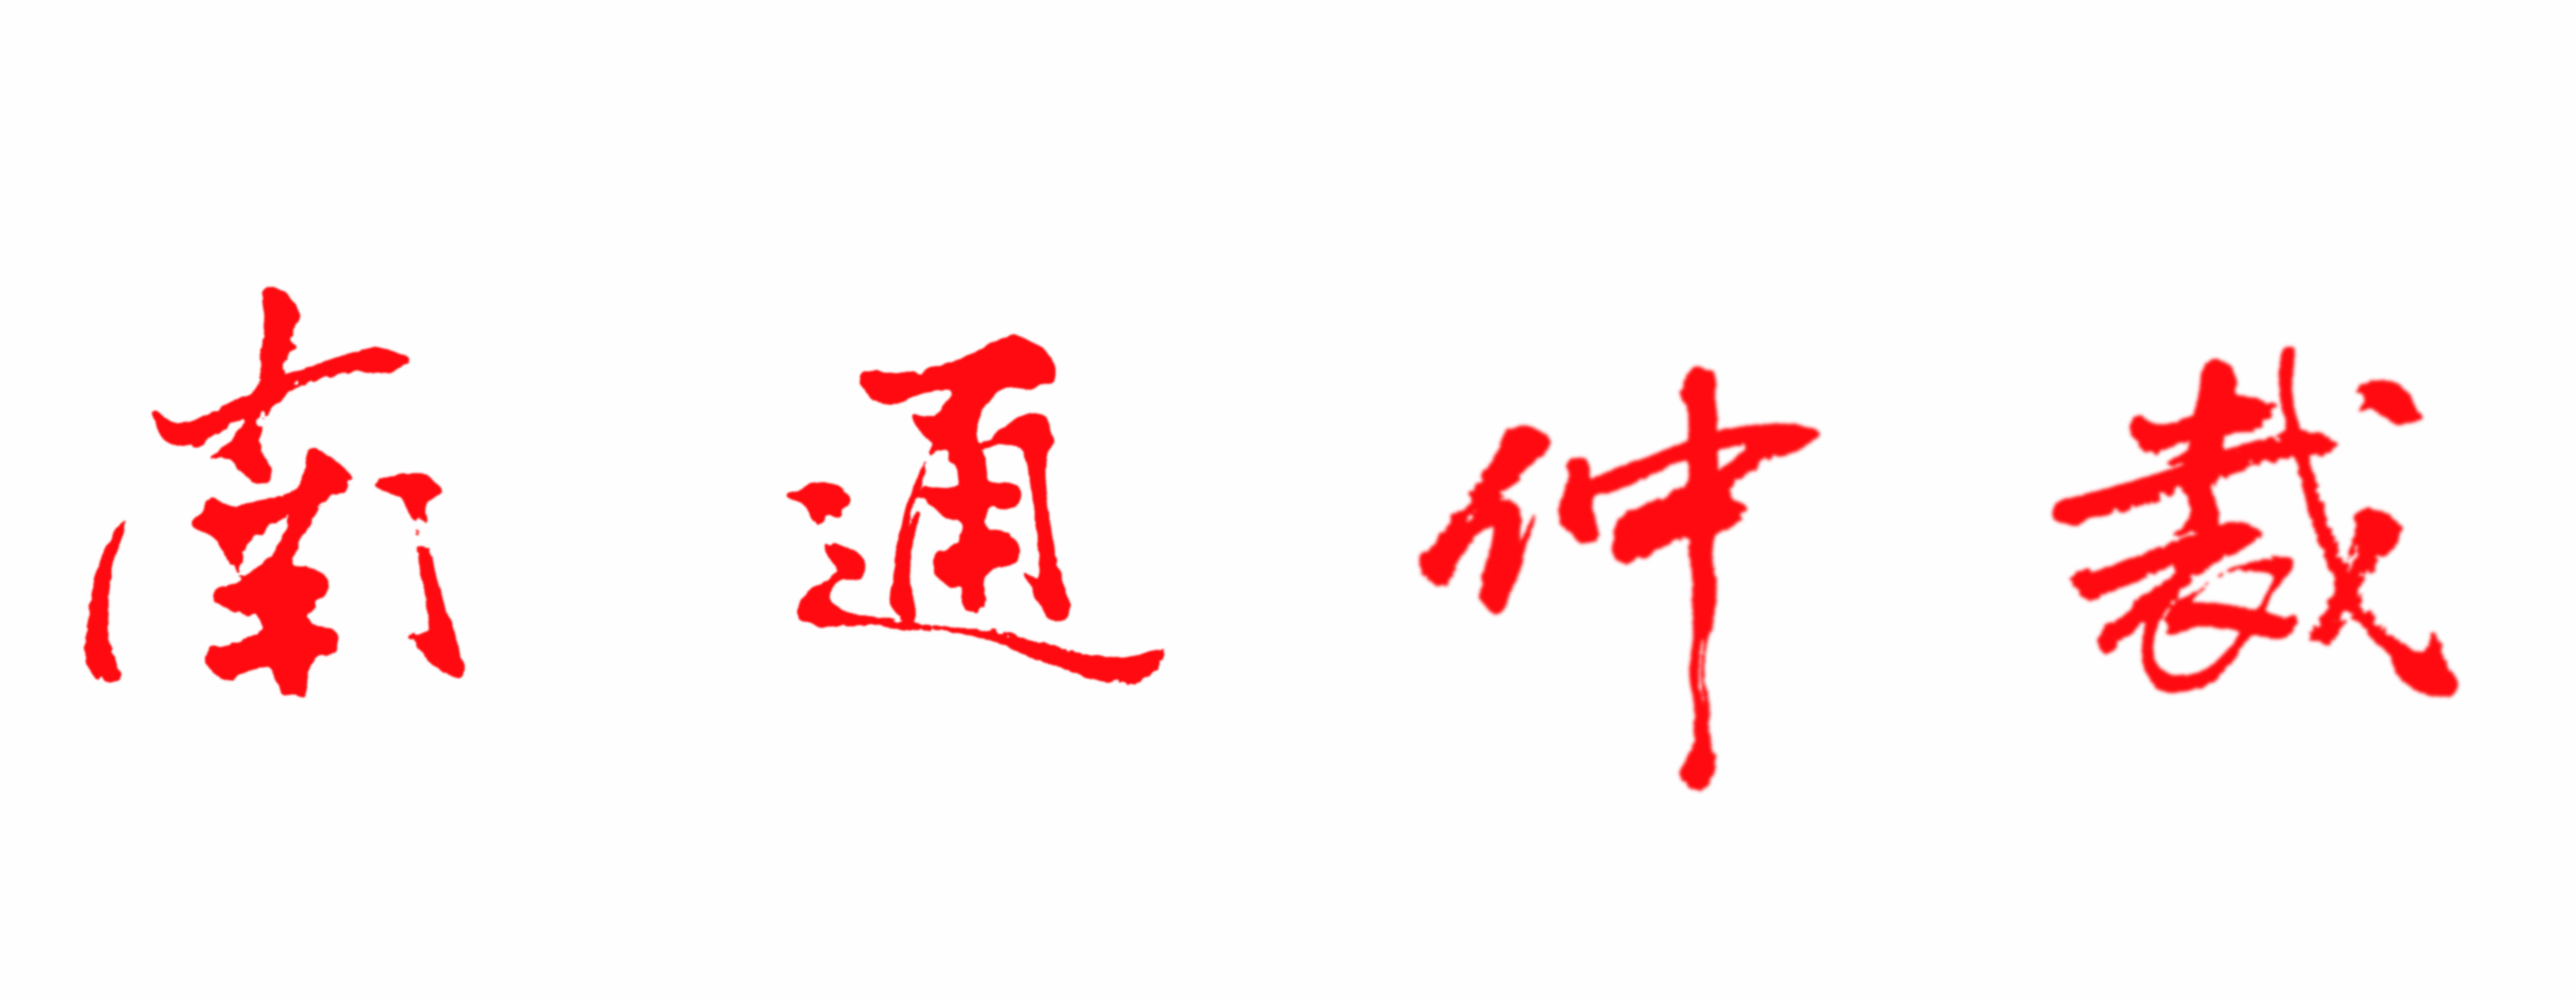 南通仲裁